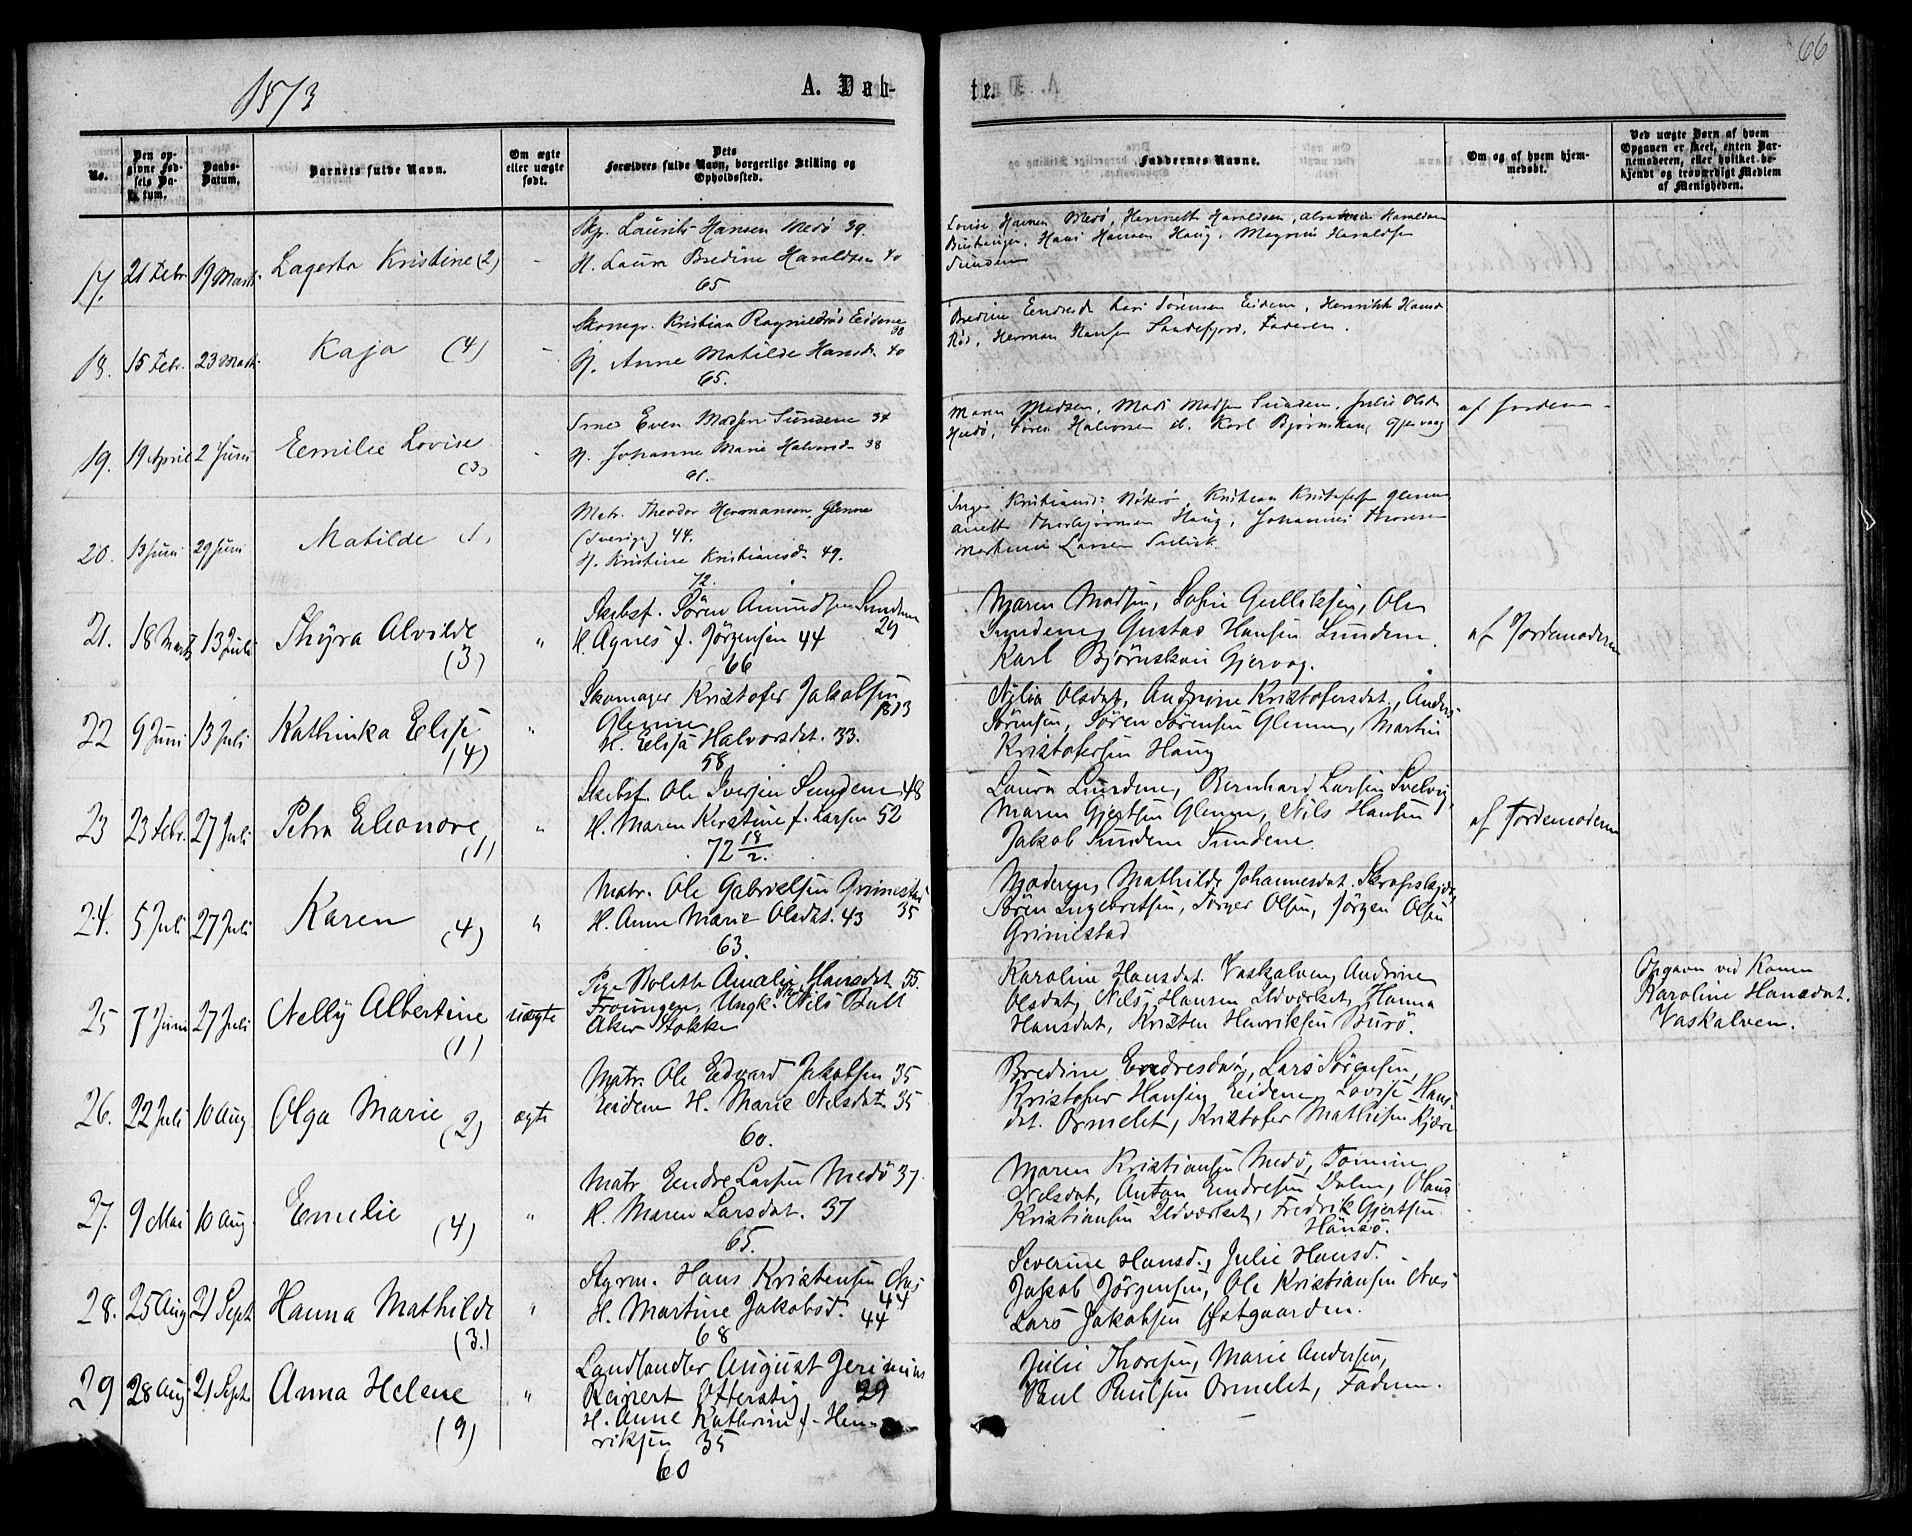 66
1873
A. Døb-
te.
No.
Den op-
givne Fød-
sels Da-
tum.
Daabs-
Datum.
Barnets fulde Navn.
Om ægte
eller uægte
født.
Dets
Forældres fulde Navn, borgerlige Stilling og
Opholdssted.
Faddernes Navne.
Om og af hvem hjem-
medøbt.
Ved uægte Børn af hvem
Opgaven er skeet, enten Bar-
nemoderen, eller hvilket be-
kjendt og troværdigt Medlem
af Menigheden.
17. 21 Febr. 19 Marts Lagerta Kristine (2) -
Skp. Laurits Hansen Medö 39.
H. Laura Bredine Haraldsen 40
65
Lovise Hansen Medö, Henriette Haraldsen, Haraldsen
Hans Hansen Haug, Magnus Haraldsen
Sunden
18. 15 Febr. 23 Marts Kaja (4) -
Skomgr. Kristian Ragnildröd Eidene
38
H. Anne Matilde Hansd. 40
65.
Bredine Endresd. Kari Sörensen Eidene, Henrikke Hansd.
Röd, Herman Hansen Sandefjord, Faderen.
19. 19 April 2 Juni Emilie Lovise (3) -
Even Madsen Sundene 34
H. Johanne Marie Halvorsd. 38
61.
Maren Madsen, Mads Madsen Sunden, Julie Olsd.
Medö, Sören Halvorsen Karl Björnskau, Gjervaag
af Jordem.
20. 13 Juni 29 Juni Matilde (1.
Matr. Theodor Hermansen, Glenne
(Sverige) 44.
H. Kristine Kristiansd. 49.
72.
Inger Kristiansd. Nöterö, Kristian Kristofersen Glenne
Anette Thorbjörnsen Haug, Johannes Thoresen
Martinus Larsen
21. 18 Marts 13 Juli Thÿra Alvilde (3) "
Skibsf. Sören Amundsen Sunden
29
H. Agnes f. Jörgensen 44
66
Maren Madsen, Sofie Gulliksen, Ole
Sundene, Gustav Hansen Sundene
Karl Björnskau Gjervag.
af Jordemoderen
22 9 Juni 13 Juli Kathinka Elise (4) "
Skomager Kristofer Jakobsen
1813
Glenne
H. Elise Halvorsdat. 33.
58
Nylia Olsdat, Andrine Kristofersdat, Anders
Sörensen, Sören Sörensen Glenne, Martin
Kristofersen Haug
23 23 Febr. 27 Juli Petra Eleonore (1) "
Skibsf. Ole Iversen Sundene 48
H. Maren Kirstine f. Larsen 52
72 18/2.
Laura Sundene, Bernhard Larsen Svelvig
Maren Gjertsen Glenne, Nils Hansen
Jakob Sundene Sundene.
af Jordemoderen
24. 5 Juli 27 Juli Karen (4) "
Matr. Ole Gabrielsen Grimestad
35
H. Anne Marie Olsdat. 43
63.
Moderen, Mathilde Johannesdat.
Sören Ingebretsen, Torger Olsen, Jörgen Olsen
Grimestad
25 7 Juni 27 Juli Nelly Albertine (1) uægte
Pige Bolette Amalie Hansdat 55.
Ungk. Nils Bull
Aker Stokke
Karoline Hansdat. Vaskalven, Andrine
Olsdat, Nils Hansen Udværket, Hanna
Hansdat, Kristen Henriksen Burö.
Opgaven ved Konen
Karoline Hansdat.
Vaskalven.
26. 22 Juli 10 Aug Olga Marie (2) ægte
Matr. Ole Edvard Jakobsen 35
Eidene H. Marie Nilsdat. 35
60.
Bredine Endresdat, Lars Sörensen,
Kristofer Hansen Eidene, Lovise Hans-
dat. Ormelet, Kristofer Mathisen Kjære
27. 9 Mai 10 Aug. Emelie (4) "
Matr Endre Larsen Medö 37
H. Maren Larsdat. 37
65.
Maren Kristiansen Medö, Tomine
Nilsdat, Anton Endresen Dalen, Claus
Kristiansen Udværket, Fredrik Gjertsen
Hansö.
28. 25 Aug 21 Sept. Hanna Mathilde (3.) "
Styrm. Hans Kristensen Næs
44
H. Martine Jakobsd. 44
68
Severine Hansd., Julie Hansd.
Jakob Jörgensen, Ole Kristiansen Næs
Lars Jakobsen Østgaarden.
29 28 Aug 21 Sept. Anna Helene (9) "
Landhandler August Jerimias
Reinert Otterstig 29
H. Anne Kathrine f. Hen-
riksen 35
60
Julie Thoresen, Marie Andersen,
Paul Paulsen Ormelet, Faderen.